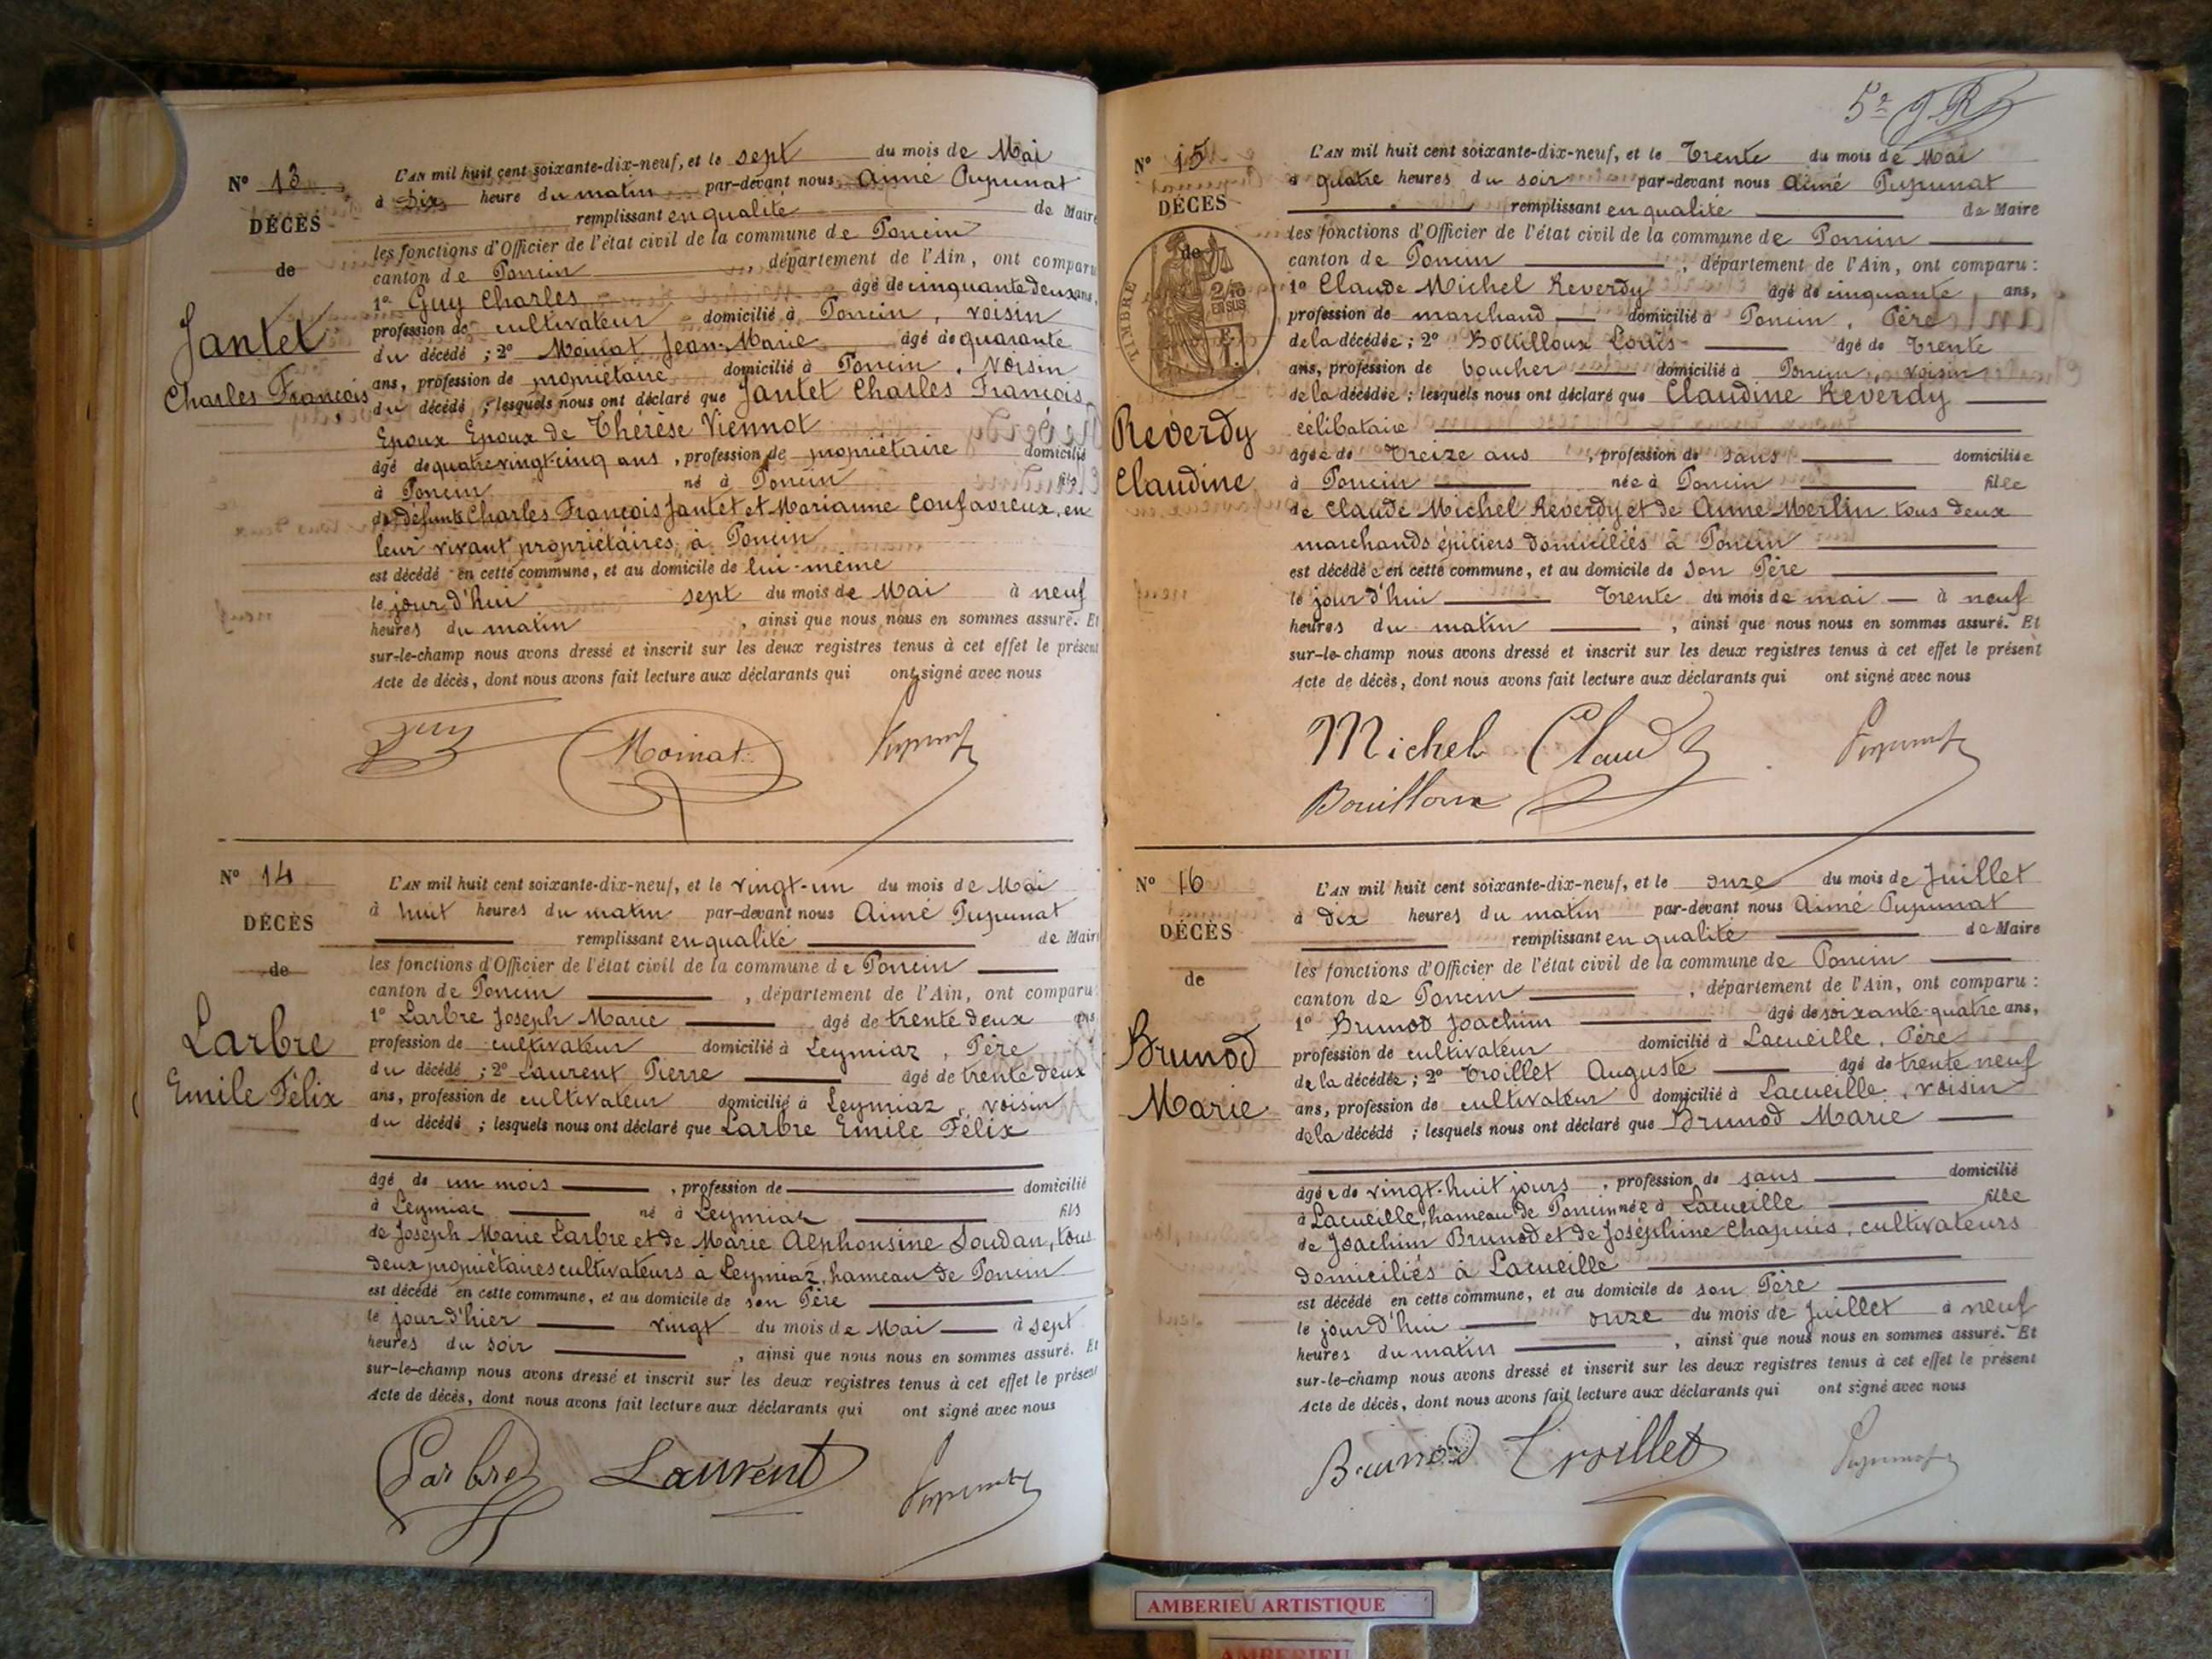 Nº 13
DÉCÈS
de
Jantet
Charles François
L'AN mil huit cent soixante-dix-neuf, et le sept du mois de Mai
à Dix heure du matin par-devant nous Aimé Pupunat
remplissant en qualité de Maire
les fonctions d'Officier de l'état civil de la commune de Poncin
canton de Poncin, département de l'Ain, ont comparu
1º Guy Charles âgé de cinquante deux ans,
profession de cultivateur domicilié à Poncin, voisin
du décédé ; 2º Moinat Jean-Marie âgé de quarante
ans, profession de propriétaire domicilié à Poncin, voisin
du décédé ; lesquels nous ont déclaré que Jantet Charles François
Epoux Epoux de Thérèse Viennot
âgé de quatre vingt-cinq ans, profession de propriétaire domicilié
à Poncin né à Poncin fils
de défunts Charles François Jantet et Marianne Confavreux, en
leur vivant propriétaires à Poncin
est décédé en cette commune, et au domicile de lui-même
le jour d'hui sept du mois de Mai à neuf
heures du matin, ainsi que nous nous en sommes assuré. Et
sur-le-champ nous avons dressé et inscrit sur les deux registres tenus à cet effet le présent
Acte de décès, dont nous avons fait lecture aux déclarants qui ont signé avec nous
Guy Moinat Pupunat
Nº 14
DÉCÈS
de
Larbre
Emile Félix
L'AN mil huit cent soixante-dix-neuf, et le vingt-un du mois de Mai
à huit heures du matin par-devant nous Aimé Pupunat
remplissant en qualité de Maire
les fonctions d'Officier de l'état civil de la commune de Poncin
canton de Poncin, département de l'Ain, ont comparu
1º Larbre Joseph Marie âgé de trente deux ans
profession de cultivateur domicilié à Leymiaz, Père
du décédé ; 2º Laurent Pierre âgé de trente deux
ans, profession de cultivateur domicilié à Leymiaz, voisin
du décédé ; lesquels nous ont déclaré que Larbre Emile Félix
âgé de un mois, profession de domicilié
à Leymiaz né à Leymiaz fils
de Joseph Marie Larbre et de Marie Alphonsine Soudan, tous
deux propriétaires cultivateurs à Leymiaz, hameau de Poncin
est décédé en cette commune, et au domicile de son Père
le jour d'hier vingt du mois de Mai à sept
heures du soir, ainsi que nous nous en sommes assuré. Et
sur-le-champ nous avons dressé et inscrit sur les deux registres tenus à cet effet le présent
Acte de décès, dont nous avons fait lecture aux déclarants qui ont signé avec nous
Larbre Laurent Pupunat
Nº 15
DÉCÈS
de
TIMBRE
EN SUS
Reverdy
Claudine
L'AN mil huit cent soixante-dix-neuf, et le Trente du mois de Mai
à quatre heures du soir par-devant nous Aimé Pupunat
remplissant en qualité de Maire
les fonctions d'Officier de l'état civil de la commune de Poncin
canton de Poncin, département de l'Ain, ont comparu :
1º Claude Michel Reverdy âgé de cinquante ans,
profession de marchand domicilié à Poncin, Père
de la décédée ; 2º Bouilloux Louis âgé de Trente
ans, profession de boucher domicilié à Poncin, voisin
de la décédée ; lesquels nous ont déclaré que Claudine Reverdy
célibataire
âgée de Treize ans, profession de sans domiciliée
à Poncin née à Poncin fille
de Claude Michel Reverdy et de Anne Merlin tous deux
marchands épiciers domiciliés à Poncin
est décédée en cette commune, et au domicile de son Père
le jour d'hui Trente du mois de mai à neuf
heures du matin, ainsi que nous nous en sommes assuré. Et
sur-le-champ nous avons dressé et inscrit sur les deux registres tenus à cet effet le présent
Acte de décès, dont nous avons fait lecture aux déclarants qui ont signé avec nous
Michel Claude Pupunat
Bouilloux
Nº 16
DÉCÈS
de
Brunod
Marie
L'AN mil huit cent soixante-dix-neuf, et le onze du mois de Juillet
à Dix heures du matin par-devant nous Aimé Pupunat
remplissant en qualité de Maire
les fonctions d'Officier de l'état civil de la commune de Poncin
canton de Poncin, département de l'Ain, ont comparu :
1º Brunod Joachim âgé de soixante-quatre ans,
profession de cultivateur domicilié à Lacueille, Père
de la décédée ; 2º Troillet Auguste âgé de trente neuf
ans, profession de cultivateur domicilié à Lacueille, voisin
de la décédé ; lesquels nous ont déclaré que Brunod Marie
âgée de vingt-huit jours, profession de sans domicilié
à Lacueille, hameau de Poncin née à Lacueille fille
de Joachim Brunod et de Joséphine Chapuis, cultivateurs
domiciliés à Lacueille
est décédé en cette commune, et au domicile de son Père
le jour d'hui onze du mois de Juillet à neuf
heures du matin, ainsi que nous nous en sommes assuré. Et
sur-le-champ nous avons dressé et inscrit sur les deux registres tenus à cet effet le présent
Acte de décès, dont nous avons fait lecture aux déclarants qui ont signé avec nous
Brunod Troillet Pupunat
AMBERIEU ARTISTIQUE
AMBERIEU